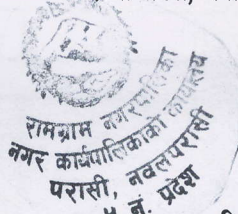 रामग्राम नगरपालिका
नगर कार्यपालिकाको कार्यालय
परासी, नवलपरासी
नं. प्रदेश